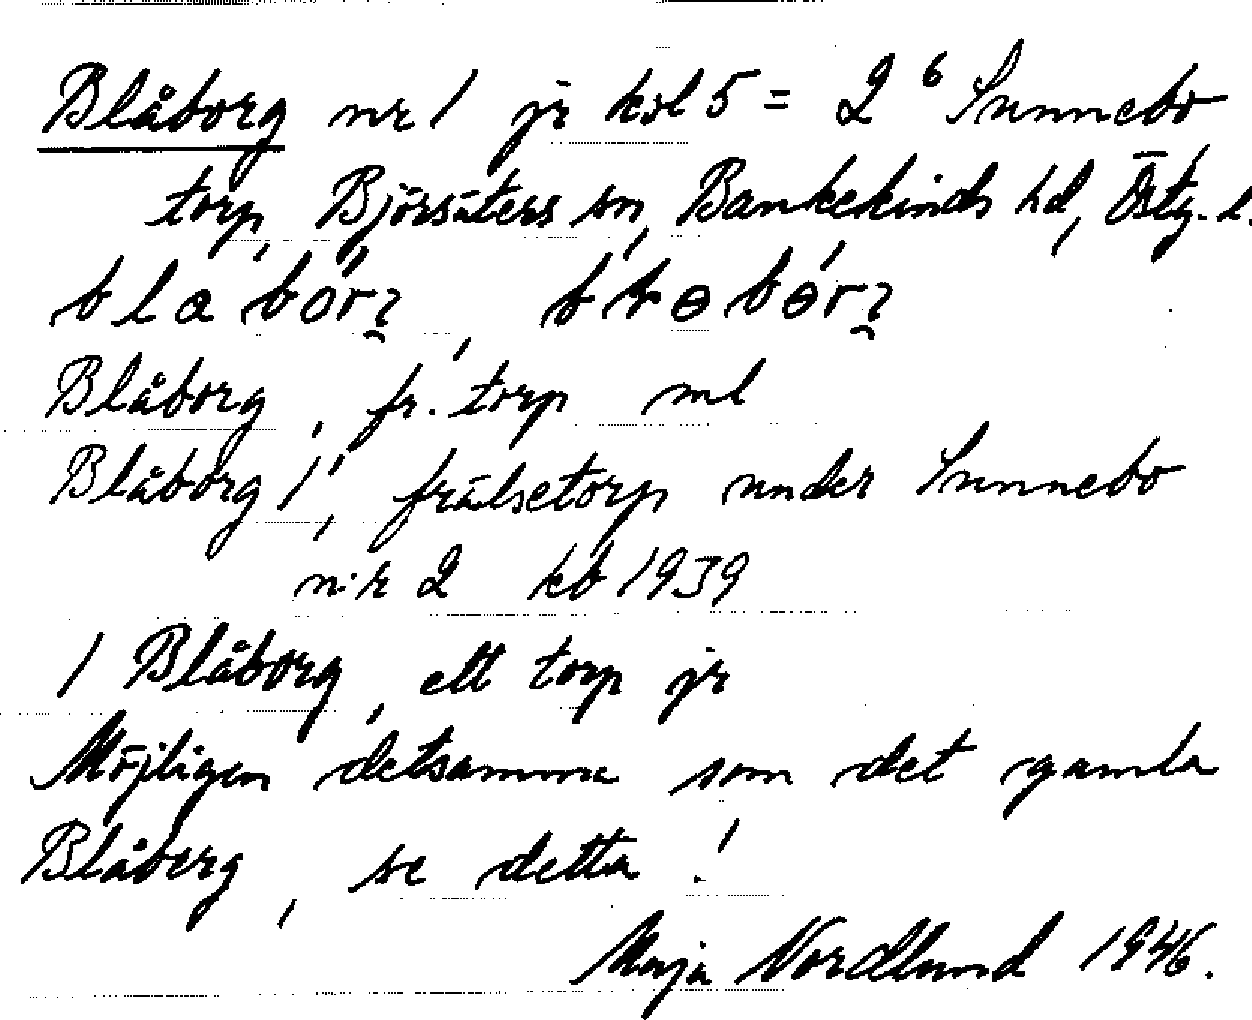 Blåborg nr 1 jr kol 5 = 2⁶ Sunnebo
torp, Björsäters sn, Bankekinds hd, Östg. l.
Blåborg, fr. torp ml
Blåborg 1, frälsetorp under Sunnebo
nr 2 kb 1939
1 Blåborg, ett torp jr
Möjligen detsamma som det gamla
Blåberg, se detta!
Maja Nordlund 1946.